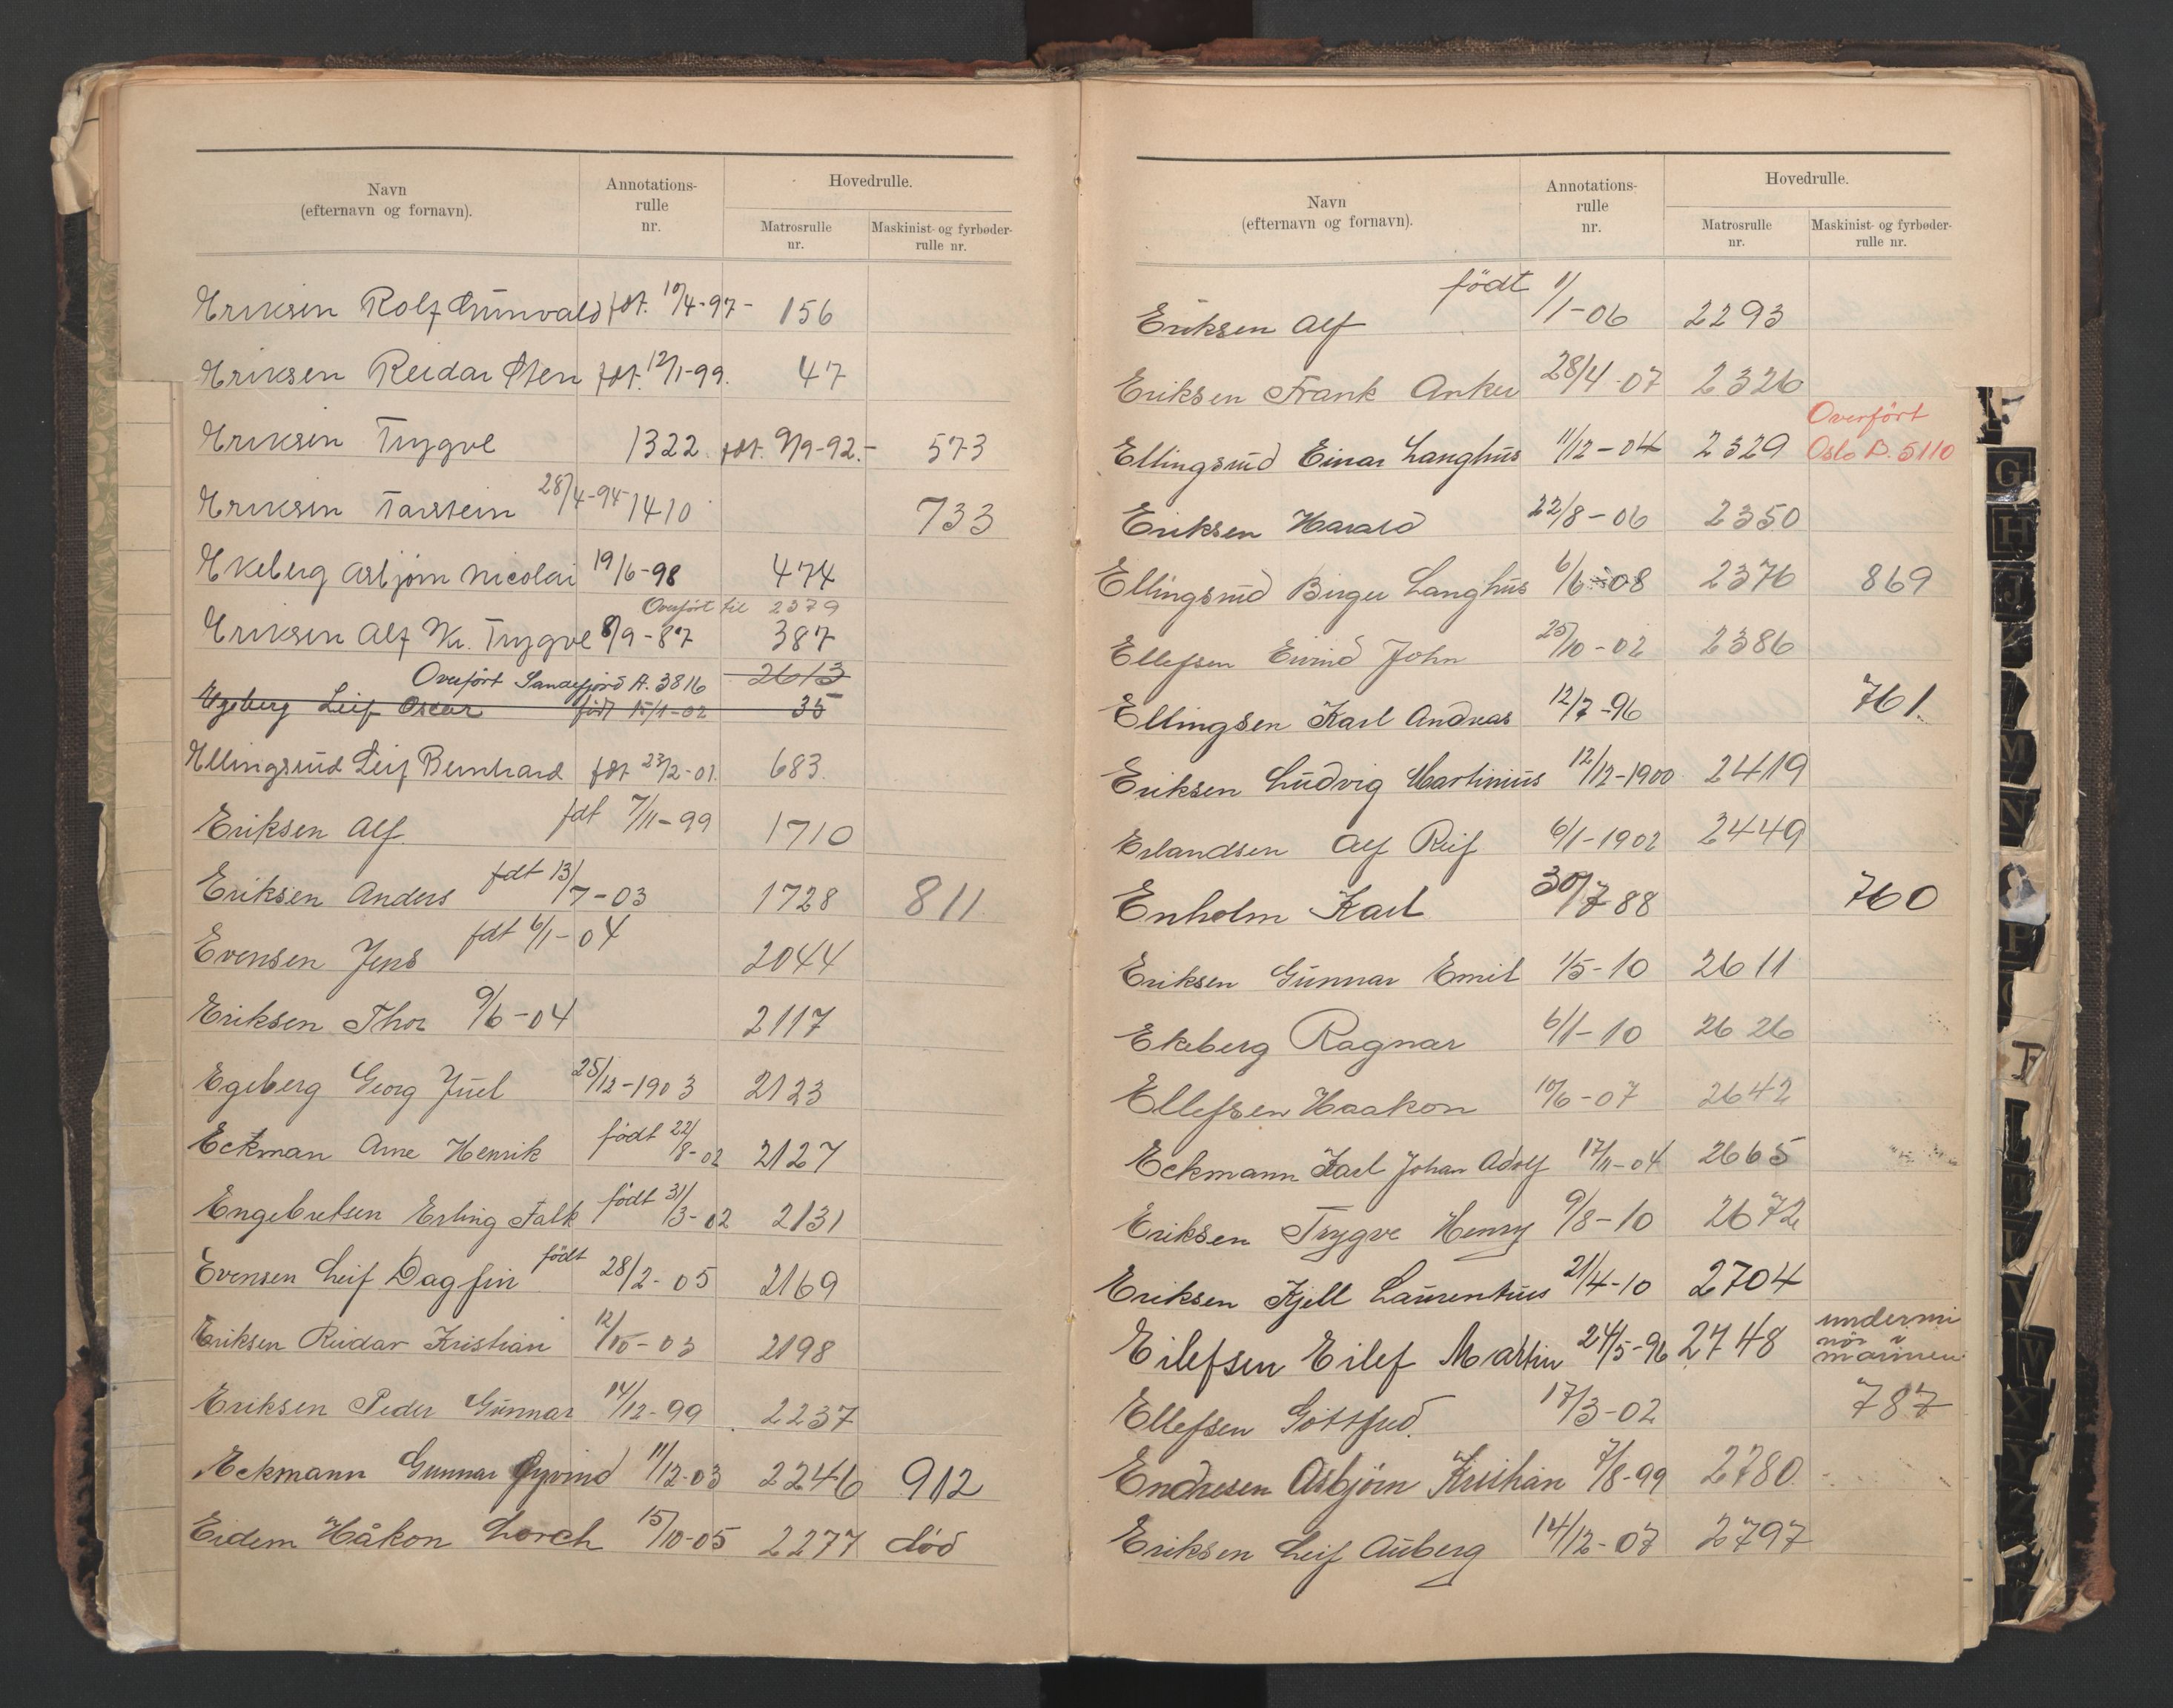 Navn
(efternavn og fornavn).
Annotations-
rulle
nr.
Hovedrulle.
Matrosrulle
nr.
Maskinist- og fyrbøder-
rulle nr.
Eriksen Rolf Gunvald fdt. 10/4-97- 156
Eriksen Reidar Sten fdt. 12/1-99. 47
Eriksen Trygve 1322 fdt. 9/9-92.- 573
Eriksen Torstein 28/4-94 1410 733
Ekeberg Asbjørn Nicolai 19/6-98 474
Overført til 2379
Eriksen Alf Kr. Trygve 8/9-87 387
Overført Sandefjord A. 3816 2613
Egeberg Leif Oscar født 15/1-02 35
Ellingsrud Leif Bernhard fdt 23/2-01. 683.
Eriksen Alf. fdt 7/11-99 1710
Eriksen Anders fdt 13/7-03 1728 811
Evensen Jens fdt 6/1-04 2044
Eriksen Thor 9/6-04 2117
Egeberg Georg Juel 25/12-1903 2123
Eckman Arne Henrik født 22/8-02 2127
Engebretsen Erling Falk født 31/3-02 2131
Evensen Leif Dagfin født 28/2-05 2169
Eriksen Reidar Kristian 12/10-03 2198
Eriksen Peder Gunnar 14/12-99 2237
Eckmann Gunnar Øyvind 11/12-03 2246 912
Eidem Håkon Lorch 15/10-05 2277 død
Navn
(efternavn og fornavn).
Annotations-
rulle
nr.
Hovedrulle.
Matrosrulle
nr.
Maskinist- og fyrbøder-
rulle nr.
Eriksen Alf født 11/1-06 2293
Eriksen Frank Anker 28/4-07 2326
Overført
Ellingsrud Einar Langhus 11/12-04 2329 Oslo B. 5110
Eriksen Harald 22/8-06 2350
Ellingsrud Birger Langhus 6/6-08 2376 869
Ellefsen Eivind John 25/10-02 2386
Ellingsen Karl Andreas 12/7-96 761.
Eriksen Ludvig Martinius 12/12-1900 2419
Erlandsen Alf Reif 6/1-1902 2449
Enholm Karl 30/7-88 760
Eriksen Gunnar Emil 1/5-10 2611
Ekeberg Ragnar 6/1-10 2626
Ellefsen Haakon 10/6-07 2642
Eckmann Karl Johan Adolf 17/11-04 2665
Eriksen Trygve Henry 9/8-10 2672
Eriksen Kjell Laurentius 21/4-10 2704
Eilefsen Eilef Martin 24/5-96 2748 undermi
nør i
marinen
Ellefsen Gottfred. 17/3-02 787
Endresen Asbjørn Kristian 7/8-99 2780
Eriksen Leif Auberg 14/12-07 2797
G
H
J
M
N
P
T
W
X